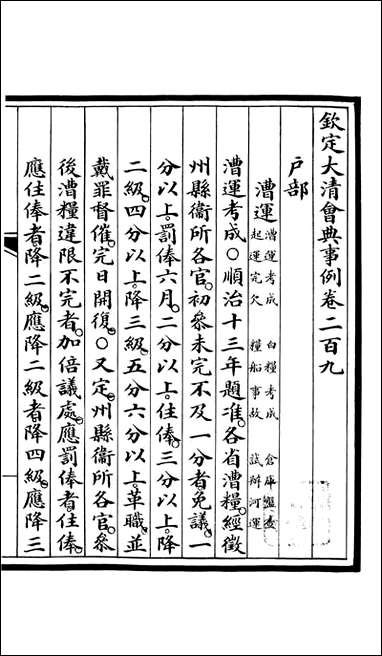 欽定大清會典事例卷二百九
戶部
漕運 漕運考成 白糧考成 倉庫鹽
起運完欠 糧船事故 試辦河運
漕運考成○順治十三年題准。各省漕糧。經徵
州縣衞所各官。初參未完不及一分者免議。一
分以上。罰俸六月。二分以上。住俸。三分以上。降
二級。四分以上。降三級。五分六分以上。革職。並
戴罪督催。完日開復。○又定。州縣衞所各官。參
後漕糧違限不完者。加倍議處。應罰俸者住俸。
應住俸者降二級。應降二級者降四級。應降三